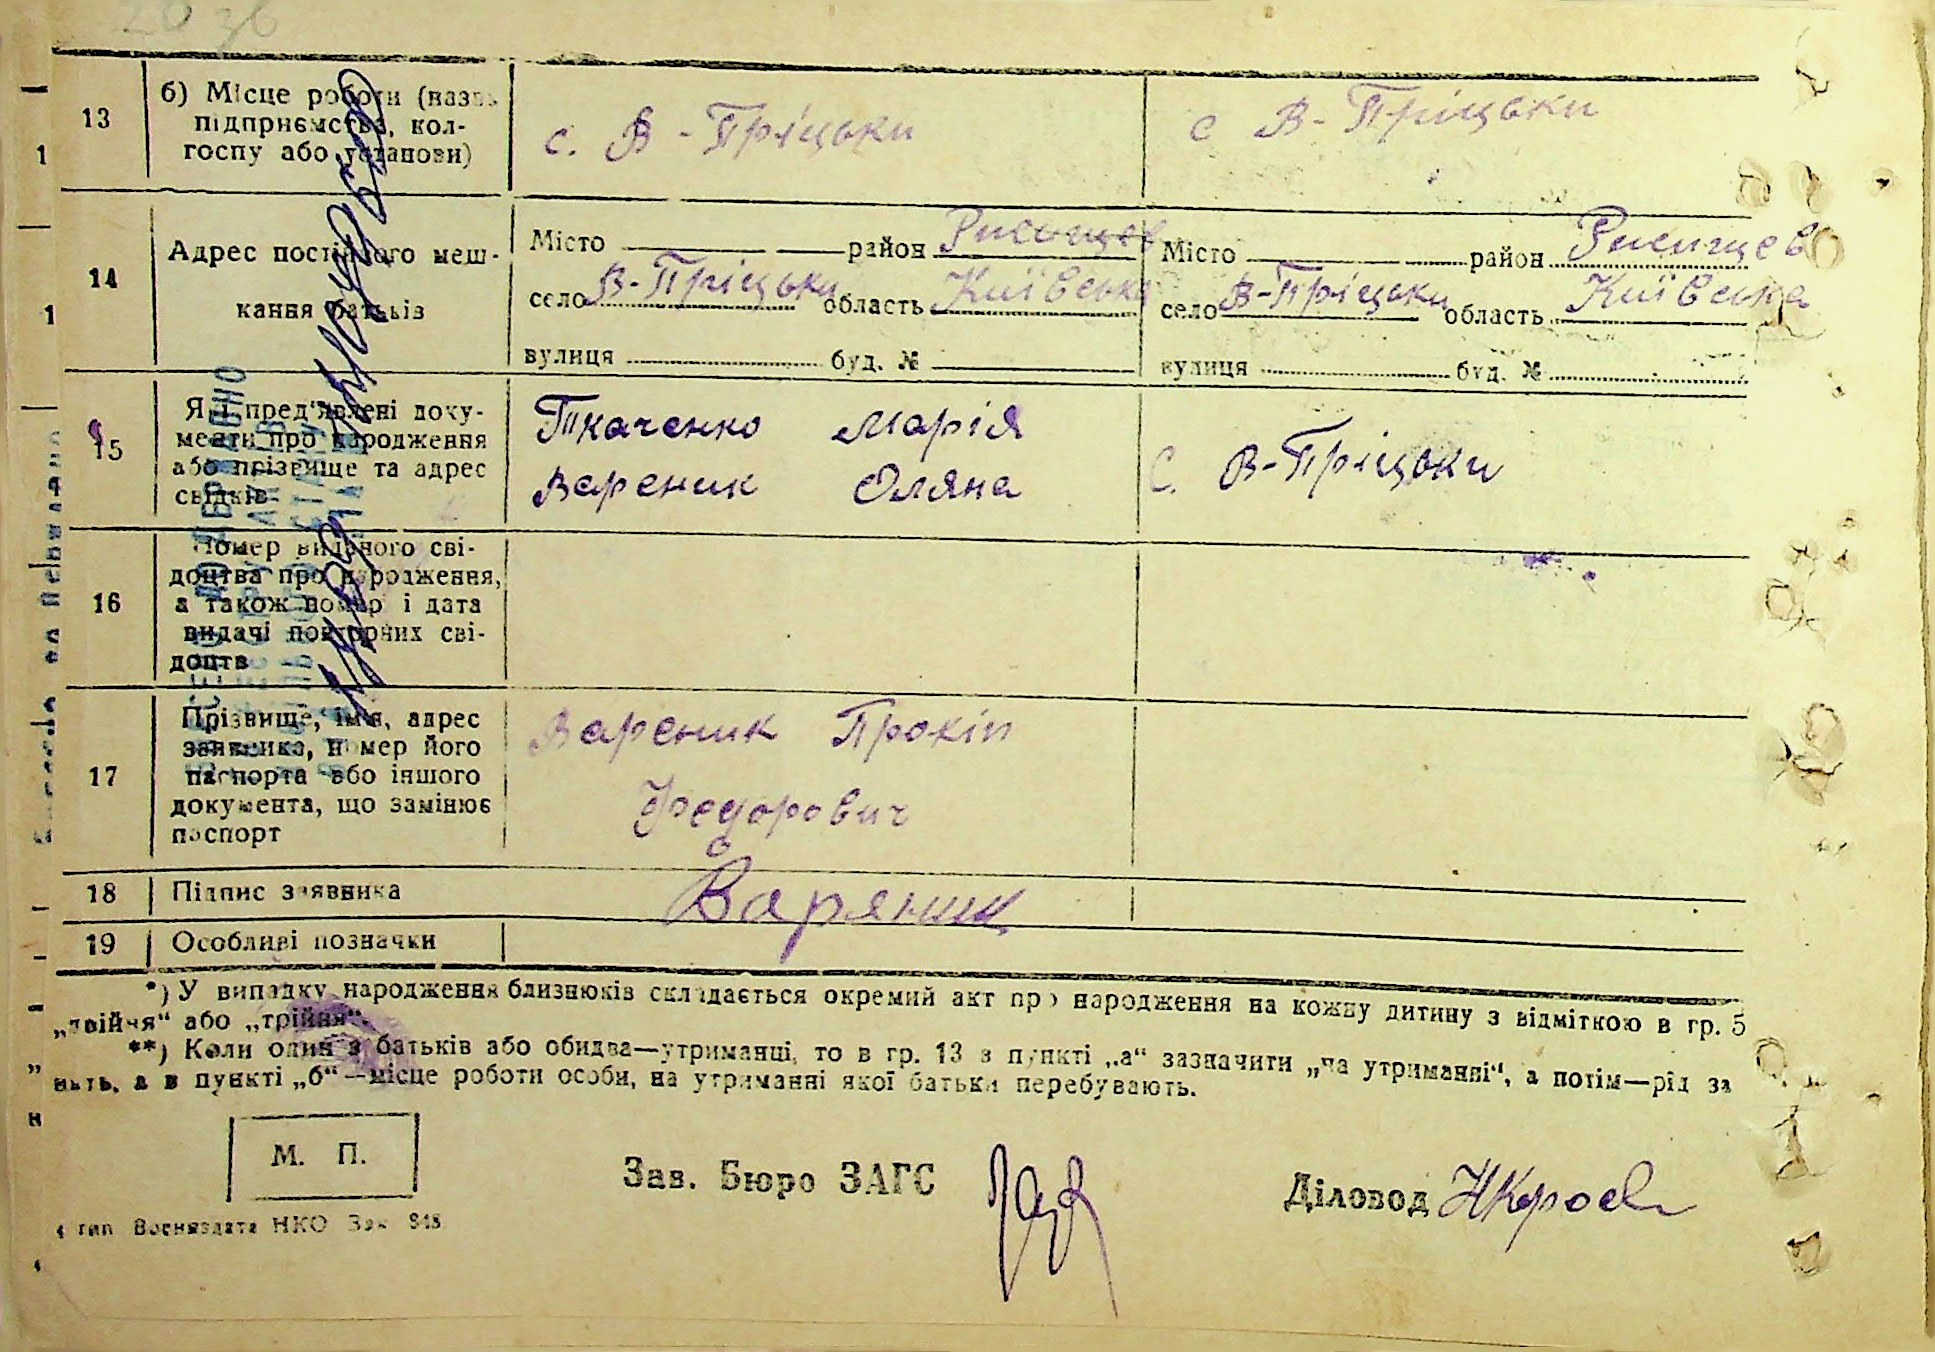 13
б) Місце роботи (назва
підприємства, кол-
госпу або установи)
с. В-Пріцьки
с В-Пріцьки
14
Адрес постійного меш-
кання батьків
Місто район Ржищев
село В-Пріцьки область Київська
вулиця буд. №
Місто район Ржищев
село В-Пріцьки область Київська
вулиця буд. №
15
Які пред'явлені доку-
менти про народження
або прізвище та адрес
свідків
Ткаченко Марія
Вареник Оляна
С. В-Пріцьки
16
Номер виданого сві-
доцтва про народження,
а також номер і дата
видачі повторних сві-
доцтв
17
Прізвище, ім'я, адрес
заявника, номер його
паспорта або іншого
документа, що замінює
паспорт
Вареник Прокіп
Федорович
18 Підпис заявника
Варяник
19 Особливі позначки
*) У випадку народження близнюків складається окремий акт про народження на кожну дитину з відміткою в гр. 5
„двійня“ або „трійня“.
**) Коли один з батьків або обидва—утриманці, то в гр. 13 в пункті „а“ зазначити „на утриманні“, а потім—рід за
нять, а в пункті „б“—місце роботи особи, на утриманні якої батьки перебувають.
М. П.
Зав. Бюро ЗАГС
Діловод
тип Воениздата НКО Зак 848